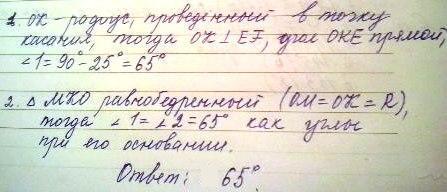 1. ОК - радиус, проведенный в точку
касания, тогда ОК ⊥ EF, угол ОКЕ прямой,
∠1=90°-25°=65°
2. △ МКО равнобедренный (ОМ=ОК=R),
тогда ∠1=∠2=65° как углы
при его основании.
Ответ: 65°